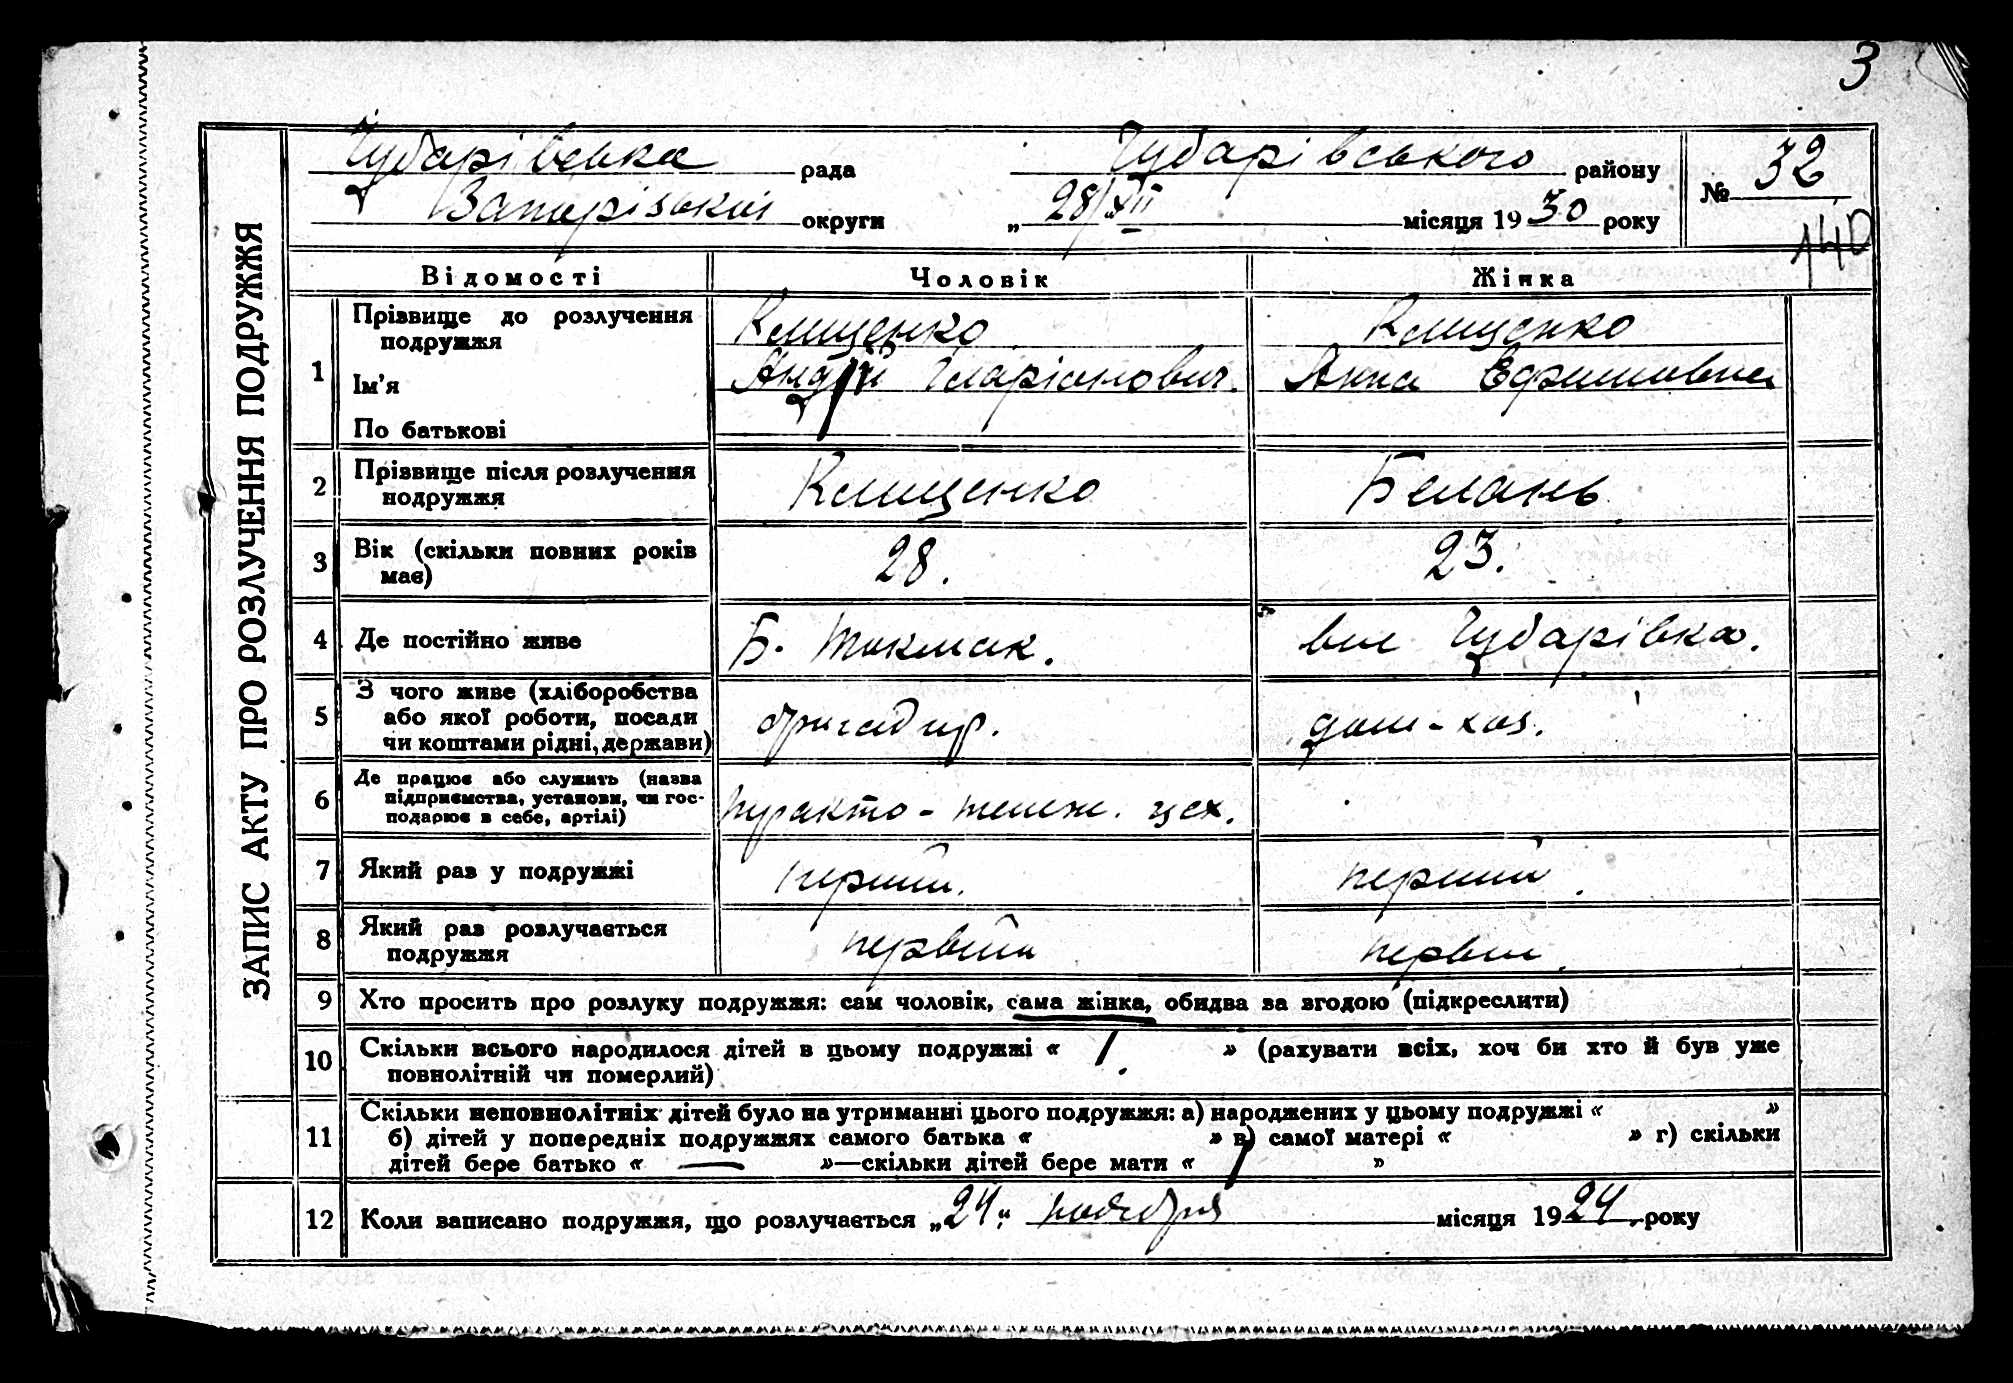 3
Чубарівська рада Чубарівського району № 32
Запорізький округи „ 28/XII місяця 1930 року
140
ЗАПИС АКТУ ПРО РОЗЛУЧЕННЯ ПОДРУЖЖЯ
Відомості Чоловік Жінка
1 Прізвище до розлучення подружжя Клищенко Клищенко
Ім'я Андрій Іларіонович. Анна Ефримовна
По батькові
2 Прізвище після розлучення нодружжя Клищенко Белань
3 Вік (скільки повних років має) 28. 23.
4 Де постійно живе Б. Токмак. Чубарівка.
5 З чого живе (хліборобства
або якої роботи, посади бригадир. дом-хоз.
чи коштами рідні, держави)
6 Де працює або служить (назва
підприємства, установи, чи гос- цех.
подарює в себе, артілі)
7 Який раз у подружжі перший. перший.
8 Який раз розлучається подружжя первий
9 Хто просить про розлуку подружжя: сам чоловік, сама жінка, обидва за згодою (підкреслити)
10 Скільки всього народилося дітей в цьому подружжі « 1. » (рахувати всіх, хоч би хто й був уже
повнолітній чи померлий)
11 Скільки неповнолітніх дітей було на утриманні цього подружжя: а) народжених у цьому подружжі « »
б) дітей у попередніх подружжях самого батька « » в) самої матері « » г) скільки
дітей бере батько « — »—скільки дітей бере мати « 1 »
12 Коли записано подружжя, що розлучається „24" ноября місяця 1924. року